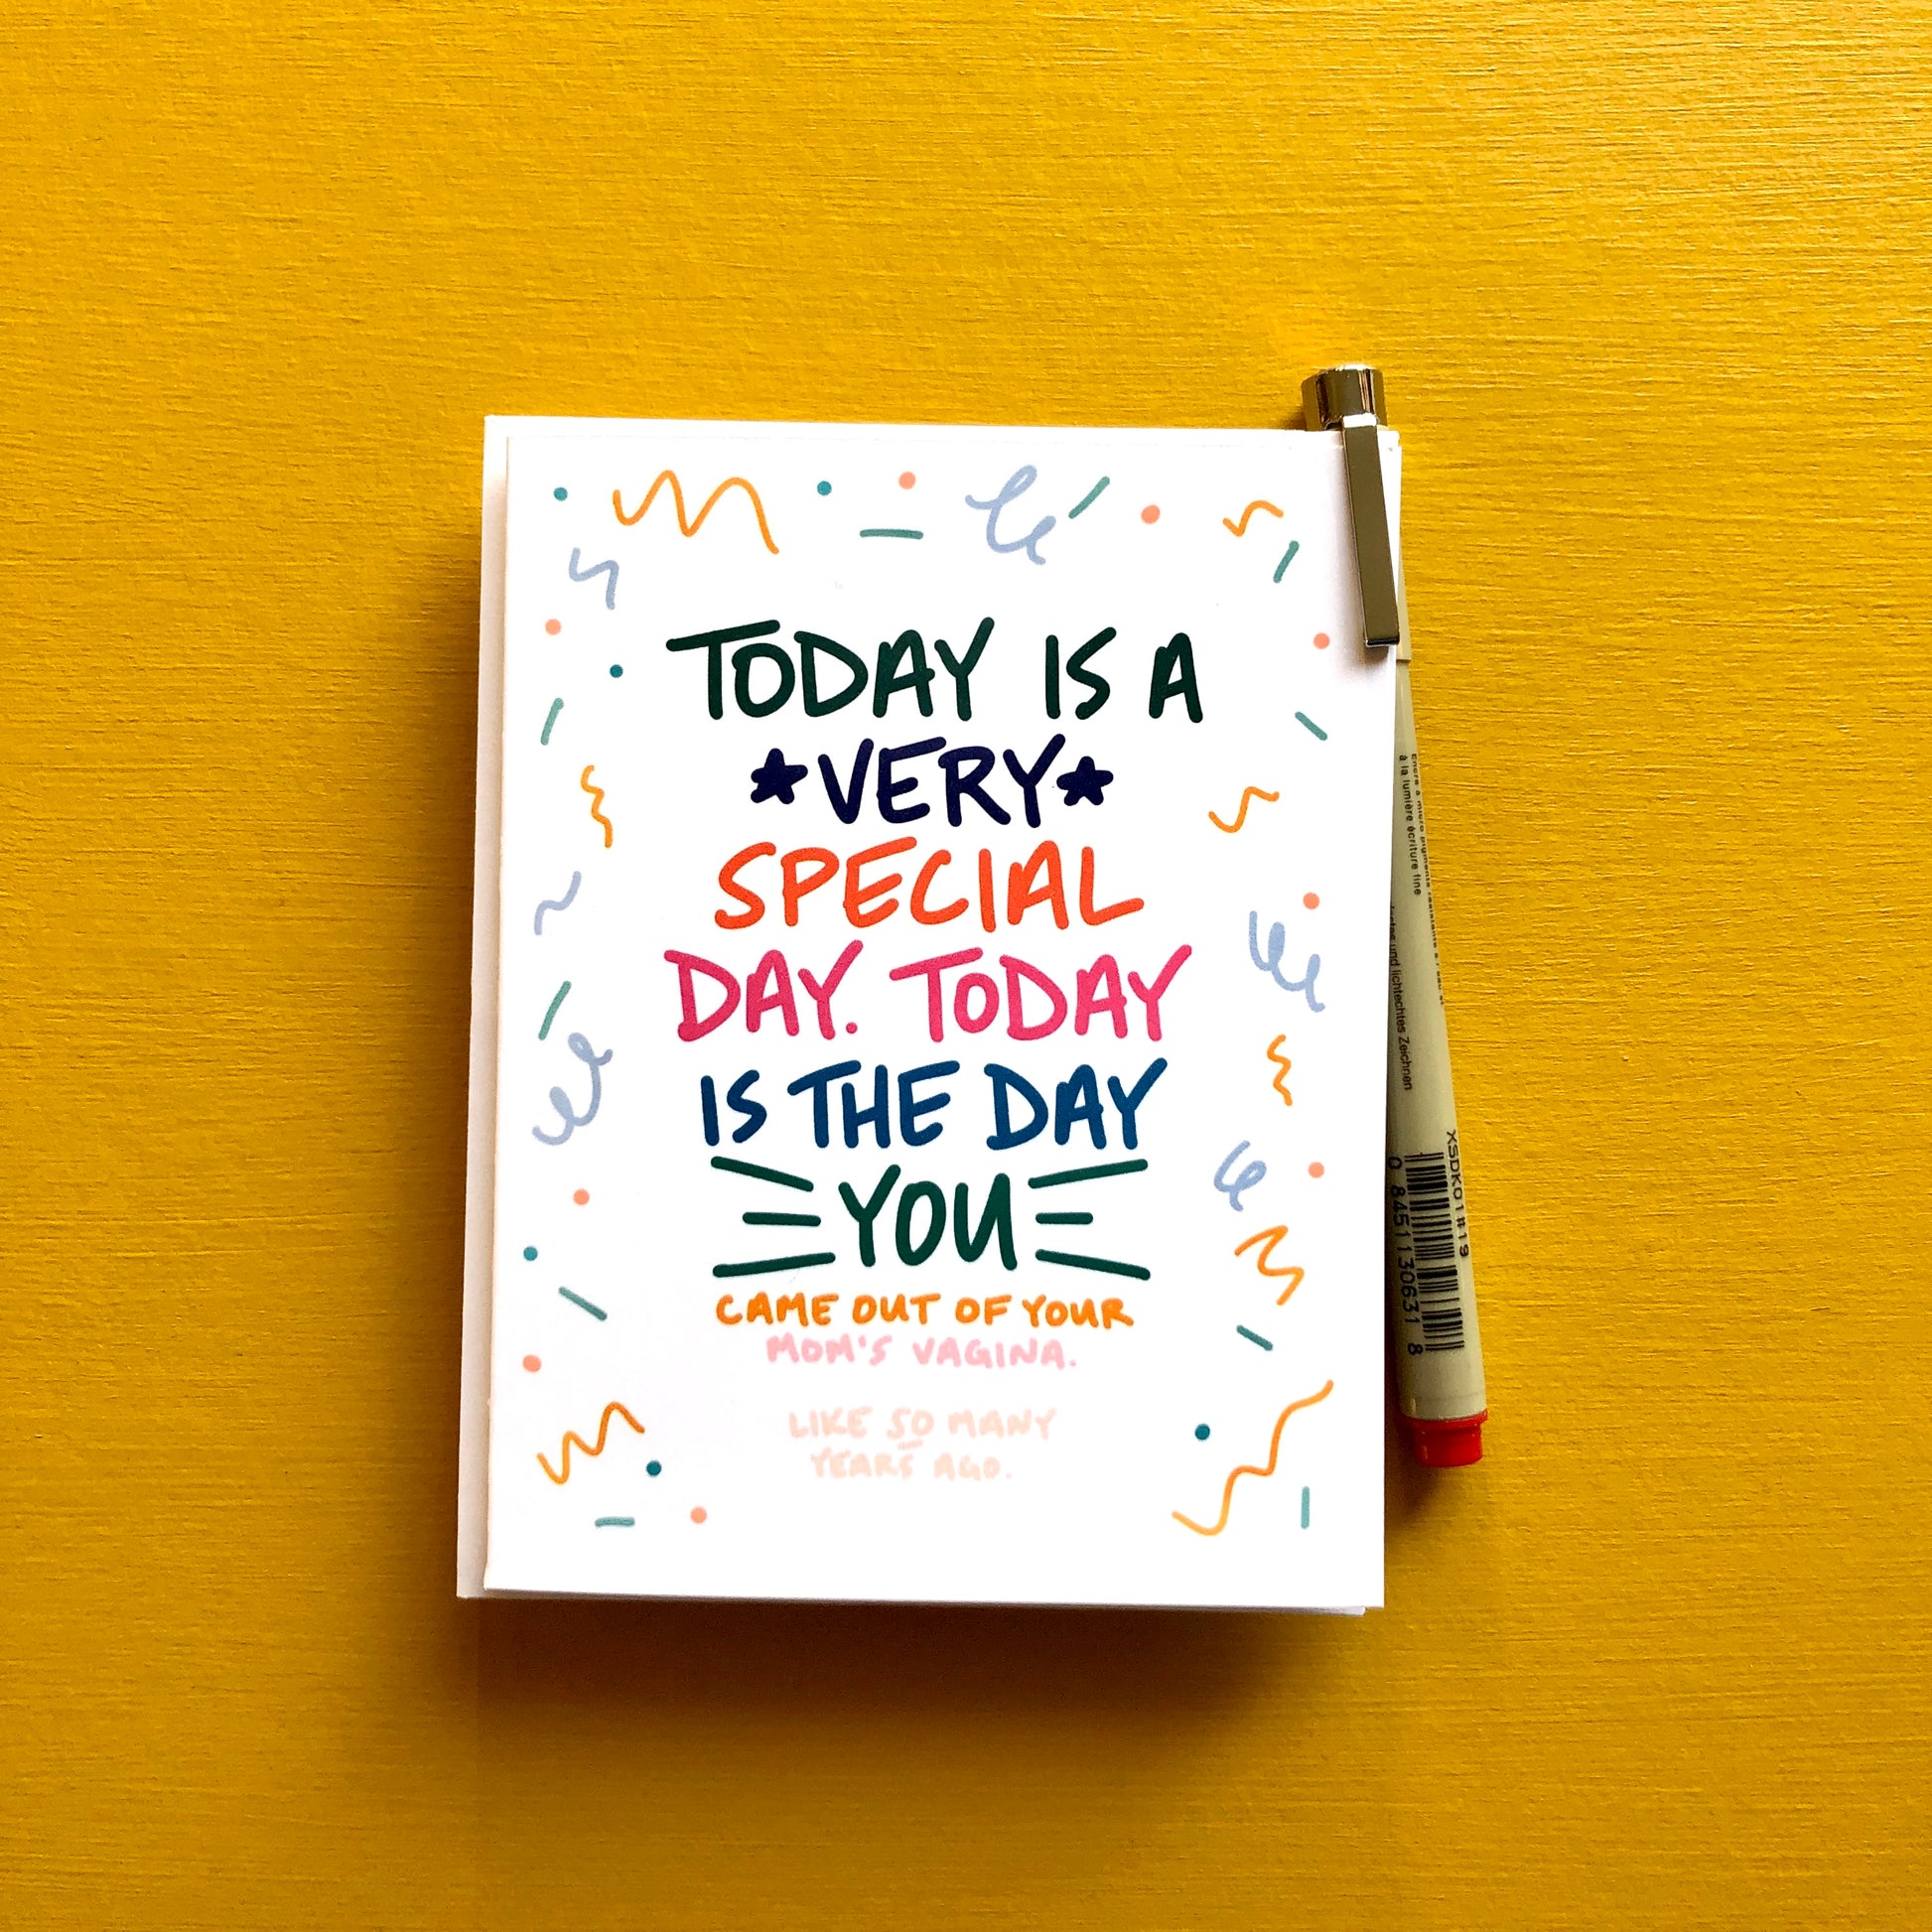 TODAY IS A
*VERY*
SPECIAL
DAY. TODAY
IS THE DAY
YOU
CAME OUT OF YOUR
MOM'S VAGINA.
LIKE SO MANY
YEARS AGO.
à la lumière écriture fine
und lichtechtes Zeichnen
XSDK01#19
0 84511 30631 8